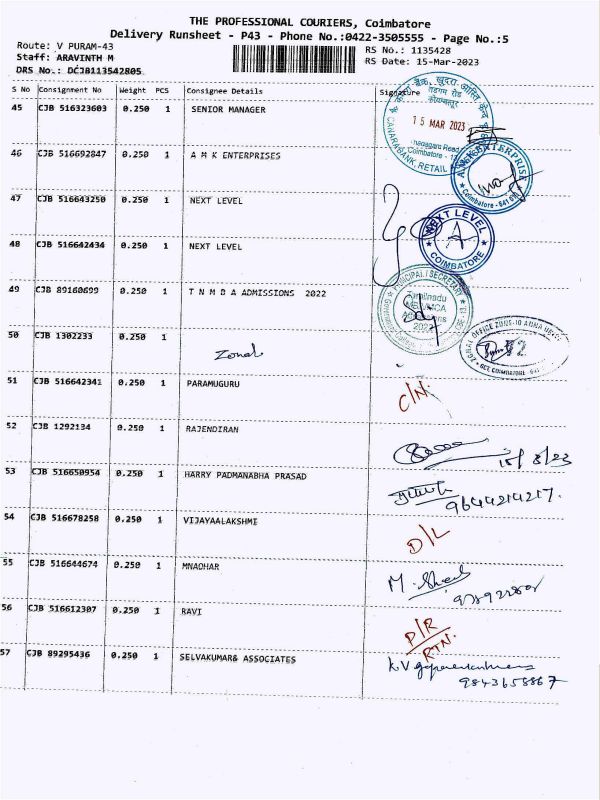 THE PROFESSIONAL COURIERS, Coimbatore
Delivery Runsheet - P43 - Phone No.:0422-3505555 - Page No.:5
Route: V PURAM-43 RS No.: 1135428
Staff: ARAVINTH M RS Date: 15-Mar-2023
DRS No.: DCJB113542805
S No Consignment No Weight PCS Consignee Details Signature
45 CJB 516323603 0.250 1 SENIOR MANAGER
15 MAR 2023
CANARA BANK, RETAIL
46 CJB 516692847 0.250 1 A M K ENTERPRISES
Coimbatore - 641
47 CJB 516643250 0.250 1 NEXT LEVEL
NEXT LEVEL
A
COIMBATORE
48 CJB 516642434 0.250 1 NEXT LEVEL
49 CJB 89160699 0.250 1 T N M B A ADMISSIONS 2022
PRINCIPAL / SECRETARY
Tamilnadu
2022
50 CJB 1302233 0.250 1 Zonal
ZONAL OFFICE ZONE-10
COIMBATORE
51 CJB 516642341 0.250 1 PARAMUGURU C/N.
52 CJB 1292134 0.250 1 RAJENDIRAN
15/3/23
53 CJB 516650954 0.250 1 HARRY PADMANABHA PRASAD
9644214217.
54 CJB 516678258 0.250 1 VIJAYAALAKSHMI D/L
55 CJB 516644674 0.250 1 MNAOHAR
56 CJB 516612307 0.250 1 RAVI P/R
RTN.
57 CJB 89295436 0.250 1 SELVAKUMAR& ASSOCIATES
9843658867